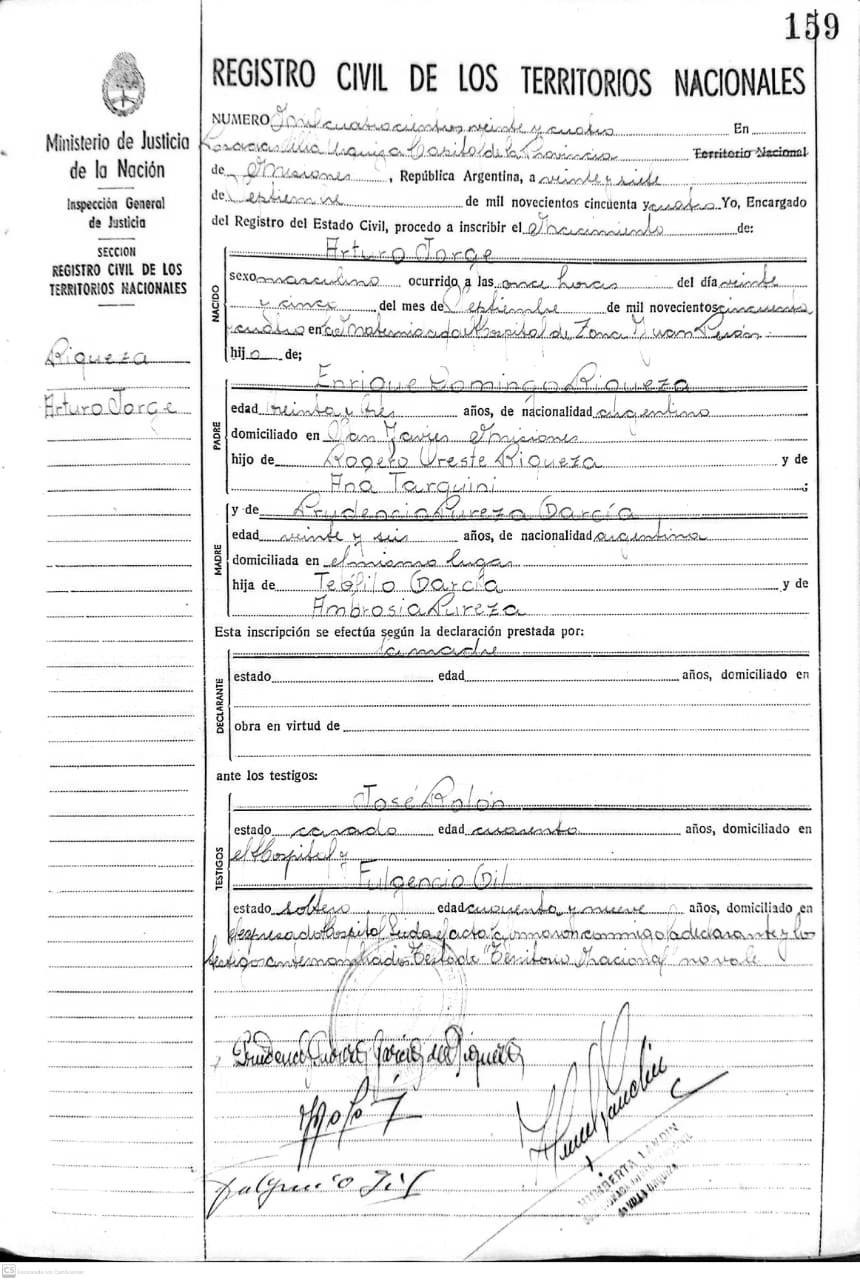 159
Ministerio de Justicia
de la Nación
Inspección General
de Justicia
SECCION
REGISTRO CIVIL DE LOS
TERRITORIOS NACIONALES
Riqueza
Arturo Jorge
REGISTRO CIVIL DE LOS TERRITORIOS NACIONALES
NUMERO mil cuatrocientos veinte y cuatro En
Posadas Villa Urquiza Capital de la Provincia Territorio Nacional
de Misiones, República Argentina, a veinte y siete
de Septiembre de mil novecientos cincuenta y cuatro Yo, Encargado
del Registro del Estado Civil, procedo a inscribir el Nacimiento de:
NACIDO
Arturo Jorge
sexo masculino ocurrido a las once horas del día veinte
y cinco del mes de Septiembre de mil novecientos cincuenta
y cuatro en la Maternidad Hospital de Zona Juan Perón
hijo de;
PADRE
Enrique Domingo Riqueza
edad treinta y tres años, de nacionalidad argentino
domiciliado en San Javier Misiones
hijo de Rogero Oreste Riqueza y de
Ana Tarquini ;
MADRE
y de Prudencia Pureza García
edad veinte y seis años, de nacionalidad argentina
domiciliada en el mismo lugar
hija de Teófilo García y de
Ambrosia Pureza
Esta inscripción se efectúa según la declaración prestada por:
DECLARANTE
la madre
estado edad años, domiciliado en
obra en virtud de
ante los testigos:
TESTIGOS
José Rolón
estado casado edad cuarenta años, domiciliado en
el Hospital y
Fulgencio Gil
estado soltero edad cuarenta y nueve años, domiciliado en
expresado Hospital Leida el acta la firmaron conmigo la declarante y los
testigos antes nombrados Testado "Territorio Nacional" no vale
Prudencia Pureza García de Riqueza
Fulgencio Gil
HUMBERTA LANDIN
de VILLA URQUIZA
CS